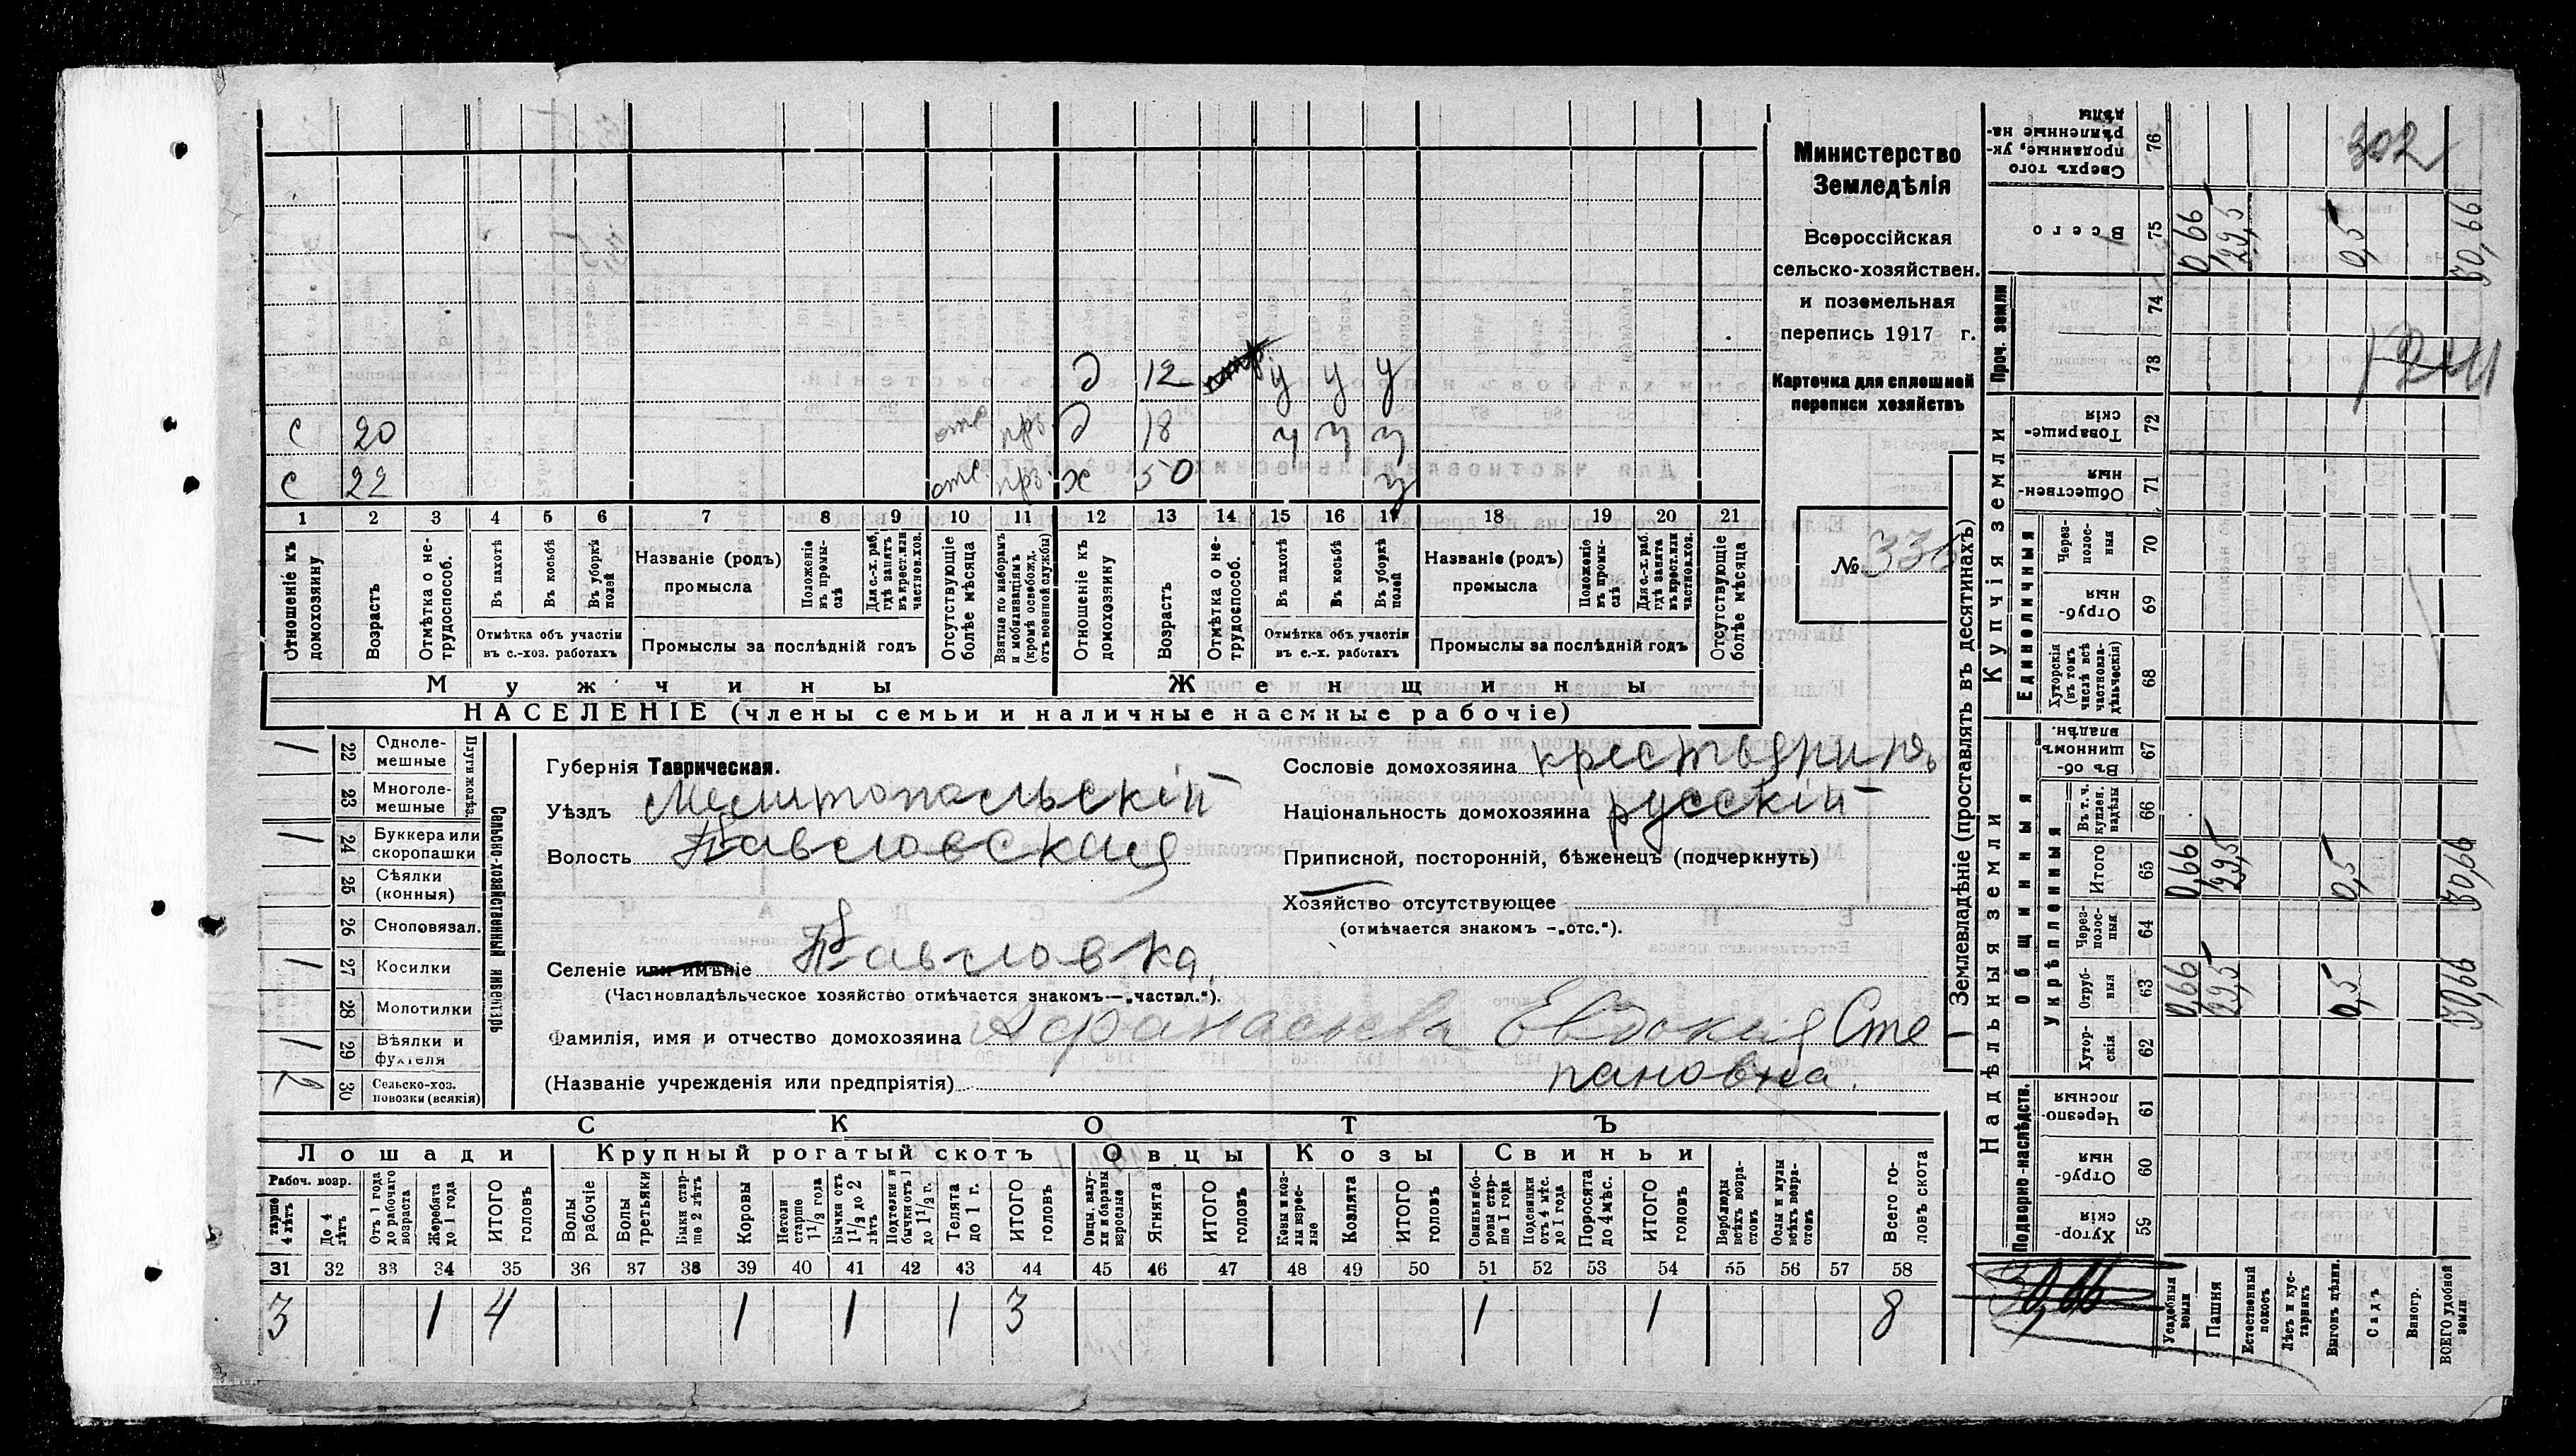 Министерство
Земледѣлія
Всероссійская
сельско-хозяйствен.
и поземельная
перепись 1917 г.
Карточка для сплошной
переписи хозяйствъ
№ 336
д 12 у у у
с 20 отс. прз. д 18 у у у
с 22 отс. прз. ж 50 у
1 2 3 4 5 6 7 8 9 10 11 12 13 14 15 16 17 18 19 20 21
Отношеніе къ домохозяину
Возрастъ
Отмѣтка о нетрудоспособ.
Въ пахотѣ
Въ косьбѣ
Въ уборкѣ полей
Отмѣтка объ участіи
въ с.-хоз. работахъ
Названіе (родъ)
промысла
Положеніе въ промыслѣ
Для с.-х. раб. гдѣ занятъ въ крест. или частнов. хоз.
Промыслы за послѣдній годъ
Отсутствующіе болѣе мѣсяца
Взятые по наборамъ и мобилизаціямъ (кромѣ освобожд. отъ военной службы)
Отношеніе къ домохозяину
Возрастъ
Отмѣтка о нетрудоспособ.
Въ пахотѣ
Въ косьбѣ
Въ уборкѣ полей
Отмѣтка объ участіи
въ с.-х. работахъ
Названіе (родъ)
промысла
Положеніе въ промыслѣ
Для с.-х. раб. гдѣ занята въ крест. или частнов. хоз.
Промыслы за послѣдній годъ
Отсутствующіе болѣе мѣсяца
Мужчины Женщины
НАСЕЛЕНІЕ (члены семьи и наличные наемные рабочіе)
Сельско-хозяйственный инвентарь
Плуги желѣз.
1 22 Однолемешные
23 Многолемешные
1 24 Буккера или скоропашки
25 Сѣялки (конныя)
26 Сноповязал.
1 27 Косилки
28 Молотилки
1 29 Вѣялки и фухтеля
2 30 Сельско-хоз. повозки (всякія)
Губернія Таврическая.
Уѣздъ Мелитопольскій
Волость Павловская
Селеніе или имѣніе Павловка
(Частновладѣльческое хозяйство отмѣчается знакомъ—„частвл.“).
Сословіе домохозяина крестьянинъ
Національность домохозяина русскій
Приписной, посторонній, бѣженецъ (подчеркнуть)
Хозяйство отсутствующее
(отмѣчается знакомъ -„отс.“).
Фамилія, имя и отчество домохозяина Афанасьева Евдокия Сте
(Названіе учрежденія или предпріятія) пановна.
СКОТЪ
Лошади Крупный рогатый скотъ Овцы Козы Свиньи
Рабоч. возр.
тарше 4 лѣтъ
До 4 лѣтъ
Отъ 1 года до рабочаго возраста
Жеребята до 1 года
ИТОГО головъ
Волы рабочіе
Волы третьяки
Быки старше 2 лѣтъ
Коровы
Нетели старше 1 1/2 года
Бычки отъ 1 1/2 до 2 лѣтъ
Подтелки и бычки отъ 1 до 1 1/2 г.
Телята до 1 г.
ИТОГО головъ
Овцы, валухи и бараны взрослые
Ягнята
ИТОГО головъ
Козы и козлы взрослые
Козлята
ИТОГО головъ
Свиньи и боровы старше 1 года
Подсвинки отъ 4 мѣс. до 1 года
Поросята до 4 мѣс.
ИТОГО головъ
Верблюды всѣхъ возрастовъ
Ослы и мулы всѣхъ возрастовъ
Всего головъ скота
31 32 33 34 35 36 37 38 39 40 41 42 43 44 45 46 47 48 49 50 51 52 53 54 55 56 57 58
3 1 4 1 1 1 3 1 1 8
Землевладѣніе (проставлять въ десятинахъ)
Надѣльныя земли
Купчія земли
Проч. земли
Подворно-наслѣдств.
Общинныя
Укрѣпленныя
Единоличныя
Сверхъ того проданные, укрѣпленные надѣлы 76 302
Всего 75 0,66 29,5 0,5 30,66
74
73
Товарищескія 72
Общественныя 71
Черезполосныя 70
Отрубныя 69
Хуторскія (въ томъ числѣ всѣ частновладѣльческія) 68
Въ общинномъ владѣн. 67
Въ т. ч. куплен. надѣлы 66
Итого 65 0,66 29,5 0,5 30,66
Черезполосныя 64
Отрубныя 63 0,66 29,5 0,5 30,66
Хуторскія 62
Черезполосныя 61
Отрубныя 60
Хуторскія 59
Усадебныя земли
Пашня
Естественный покосъ
Лѣсъ и кустарникъ
Выгонъ цѣлин.
Садъ
Виногр.
ВСЕГО удобной земли